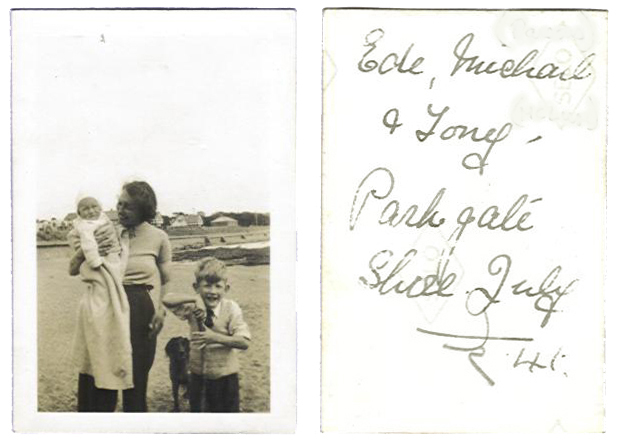 Ede, Michael
& Tony -
Parkgate
Shore July
41.